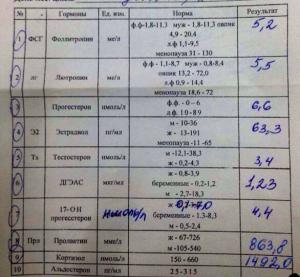 № - Гормоны Ед. изм. Норма Результат
1 ФСГ Фоллитропин ме/л ф.ф-1,8-11,3 муж - 1,8-11,3 овпик 5,2
4,9 - 20,4
л.ф 1,1-9,5
менопауза 31 - 130
2 лг Лютропин ме/л ф.ф - 1,1-8,7 муж - 0,8-8,4 5,5
овпик 13,2 - 72,0
л.ф 0,9 - 14,4
менопауза 18,6 - 72
3 Прогестерон нмоль/л ф.ф. - 0 – 6 6,6
л.ф 10 - 89
4 Э2 Эстрадиол пг/мл м - 10-36 63,3
ж - 13-191
метопауза -11 -65
5 Тs Тестостерон нмоль/л м -12,1-38,3 3,4
ж - 0,2-4,3
6 ДГЭАС мкг/мл ж - 0,8-3,9 1,23
беременные - 0,2-1,2
м - 2,7-18,3
7 17- ОН прогестерон нмоль/л ж 4,4
беременные - 1.3-8,3
м - 0,5-2,4
8 Прл Пролактин мме/л ж - 67-726 863,8
м -105-540
9 Кортизол нмоль/л 150 - 660 1492,0
10 Альдостерон пг/мл 25 - 315